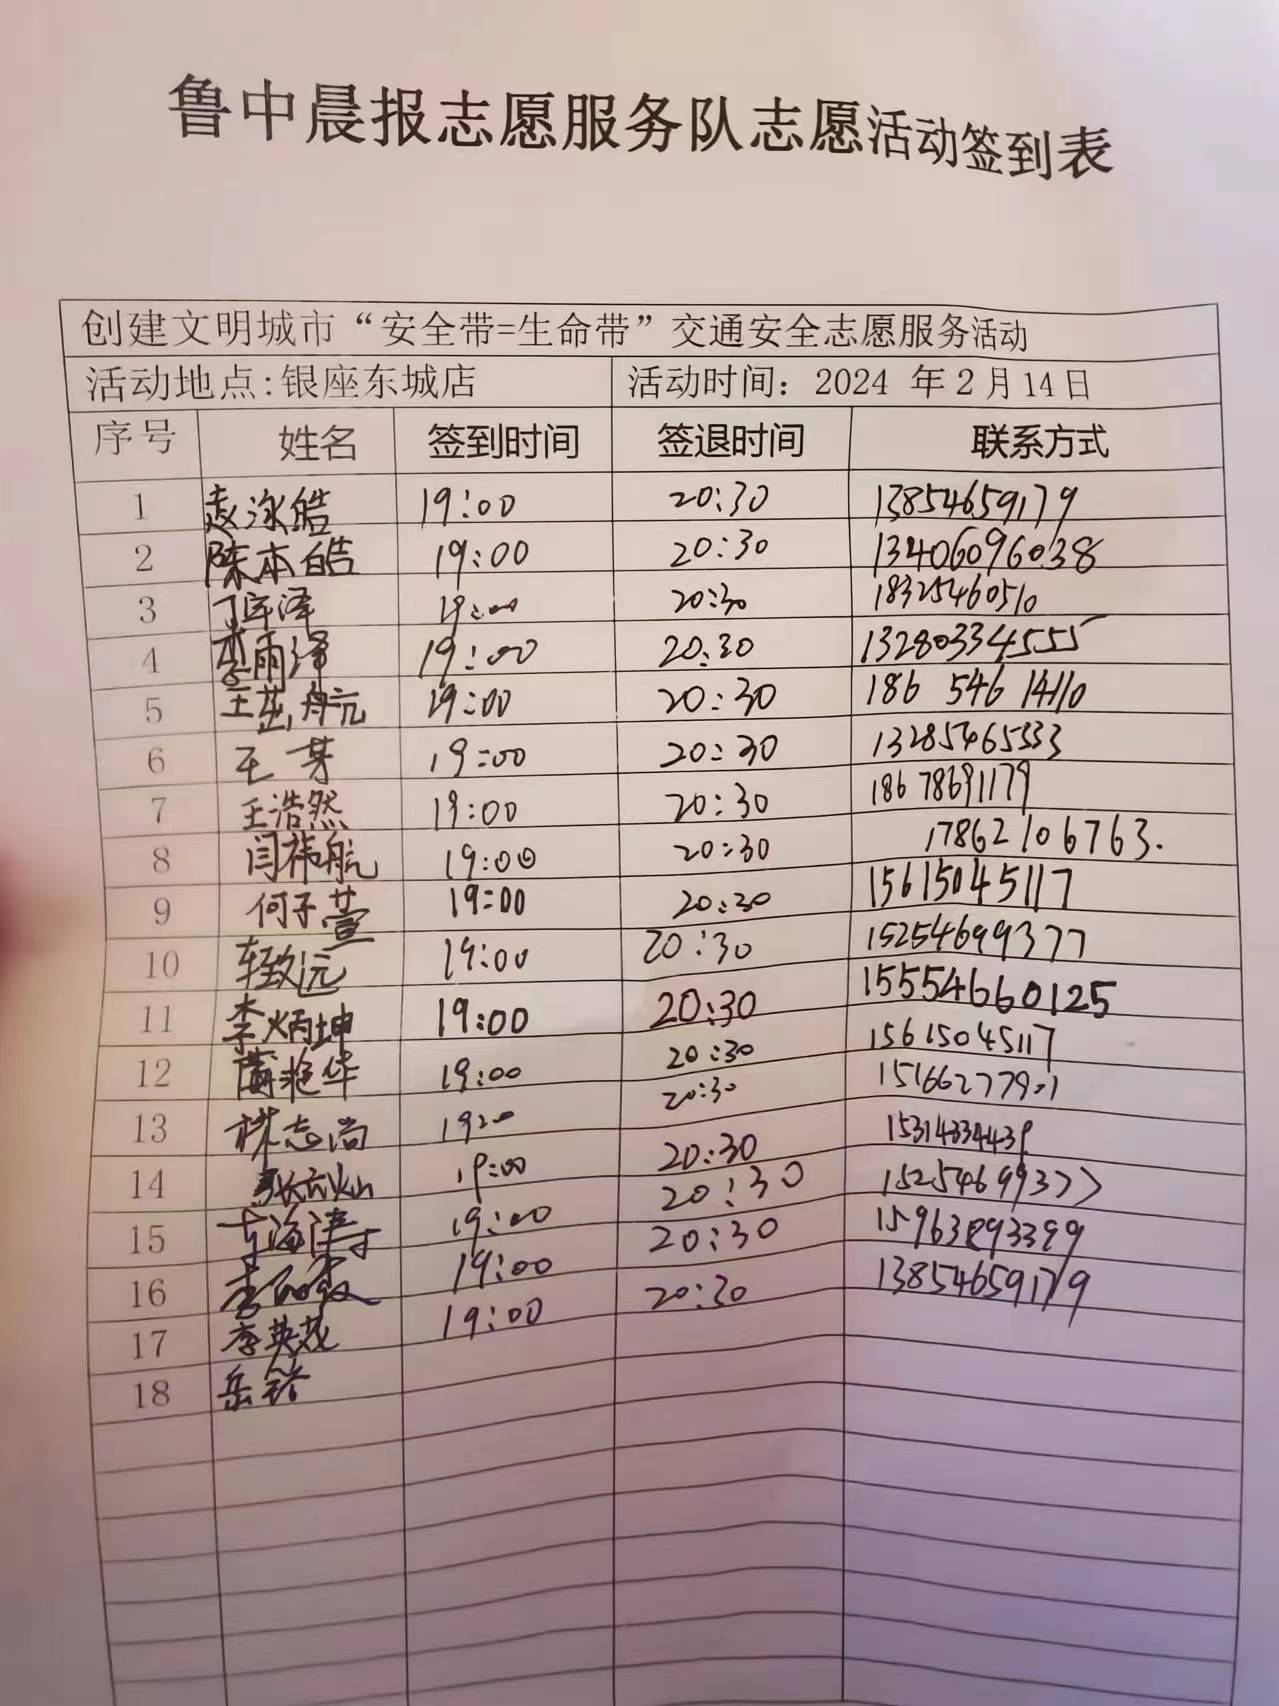 鲁中晨报志愿服务队志愿活动签到表
创建文明城市“安全带=生命带”交通安全志愿服务活动
活动地点:银座东城店 活动时间：2024 年2月14日
序号 姓名 签到时间 签退时间 联系方式
1 赵泳皓 19:00 20:30 13854659179
2 陈本皓 19:00 20:30 13406096038
3 19:00 20:30 18325460510
4 李雨泽 19:00 20:30 13280334555
5 王 航 19:00 20:30 186 546 14110
6 王 19:00 20:30 13285465333
7 王浩然 19:00 20:30 18678691179
8 闫祎航 19:00 20:30 17862106763.
9 何子萱 19:00 20:30 15615045117
10 轻致远 19:00 20:30 15254699377
11 李炳坤 19:00 20:30 15554660125
12 艳华 19:00 20:30 15615045117
13 林志尚 20:30
14 19:00 20:30
15 海涛 19:00 20:30 15254699377
16 19:00 20:30
17 李英茂 19:00 20:30 13854659179
18 岳